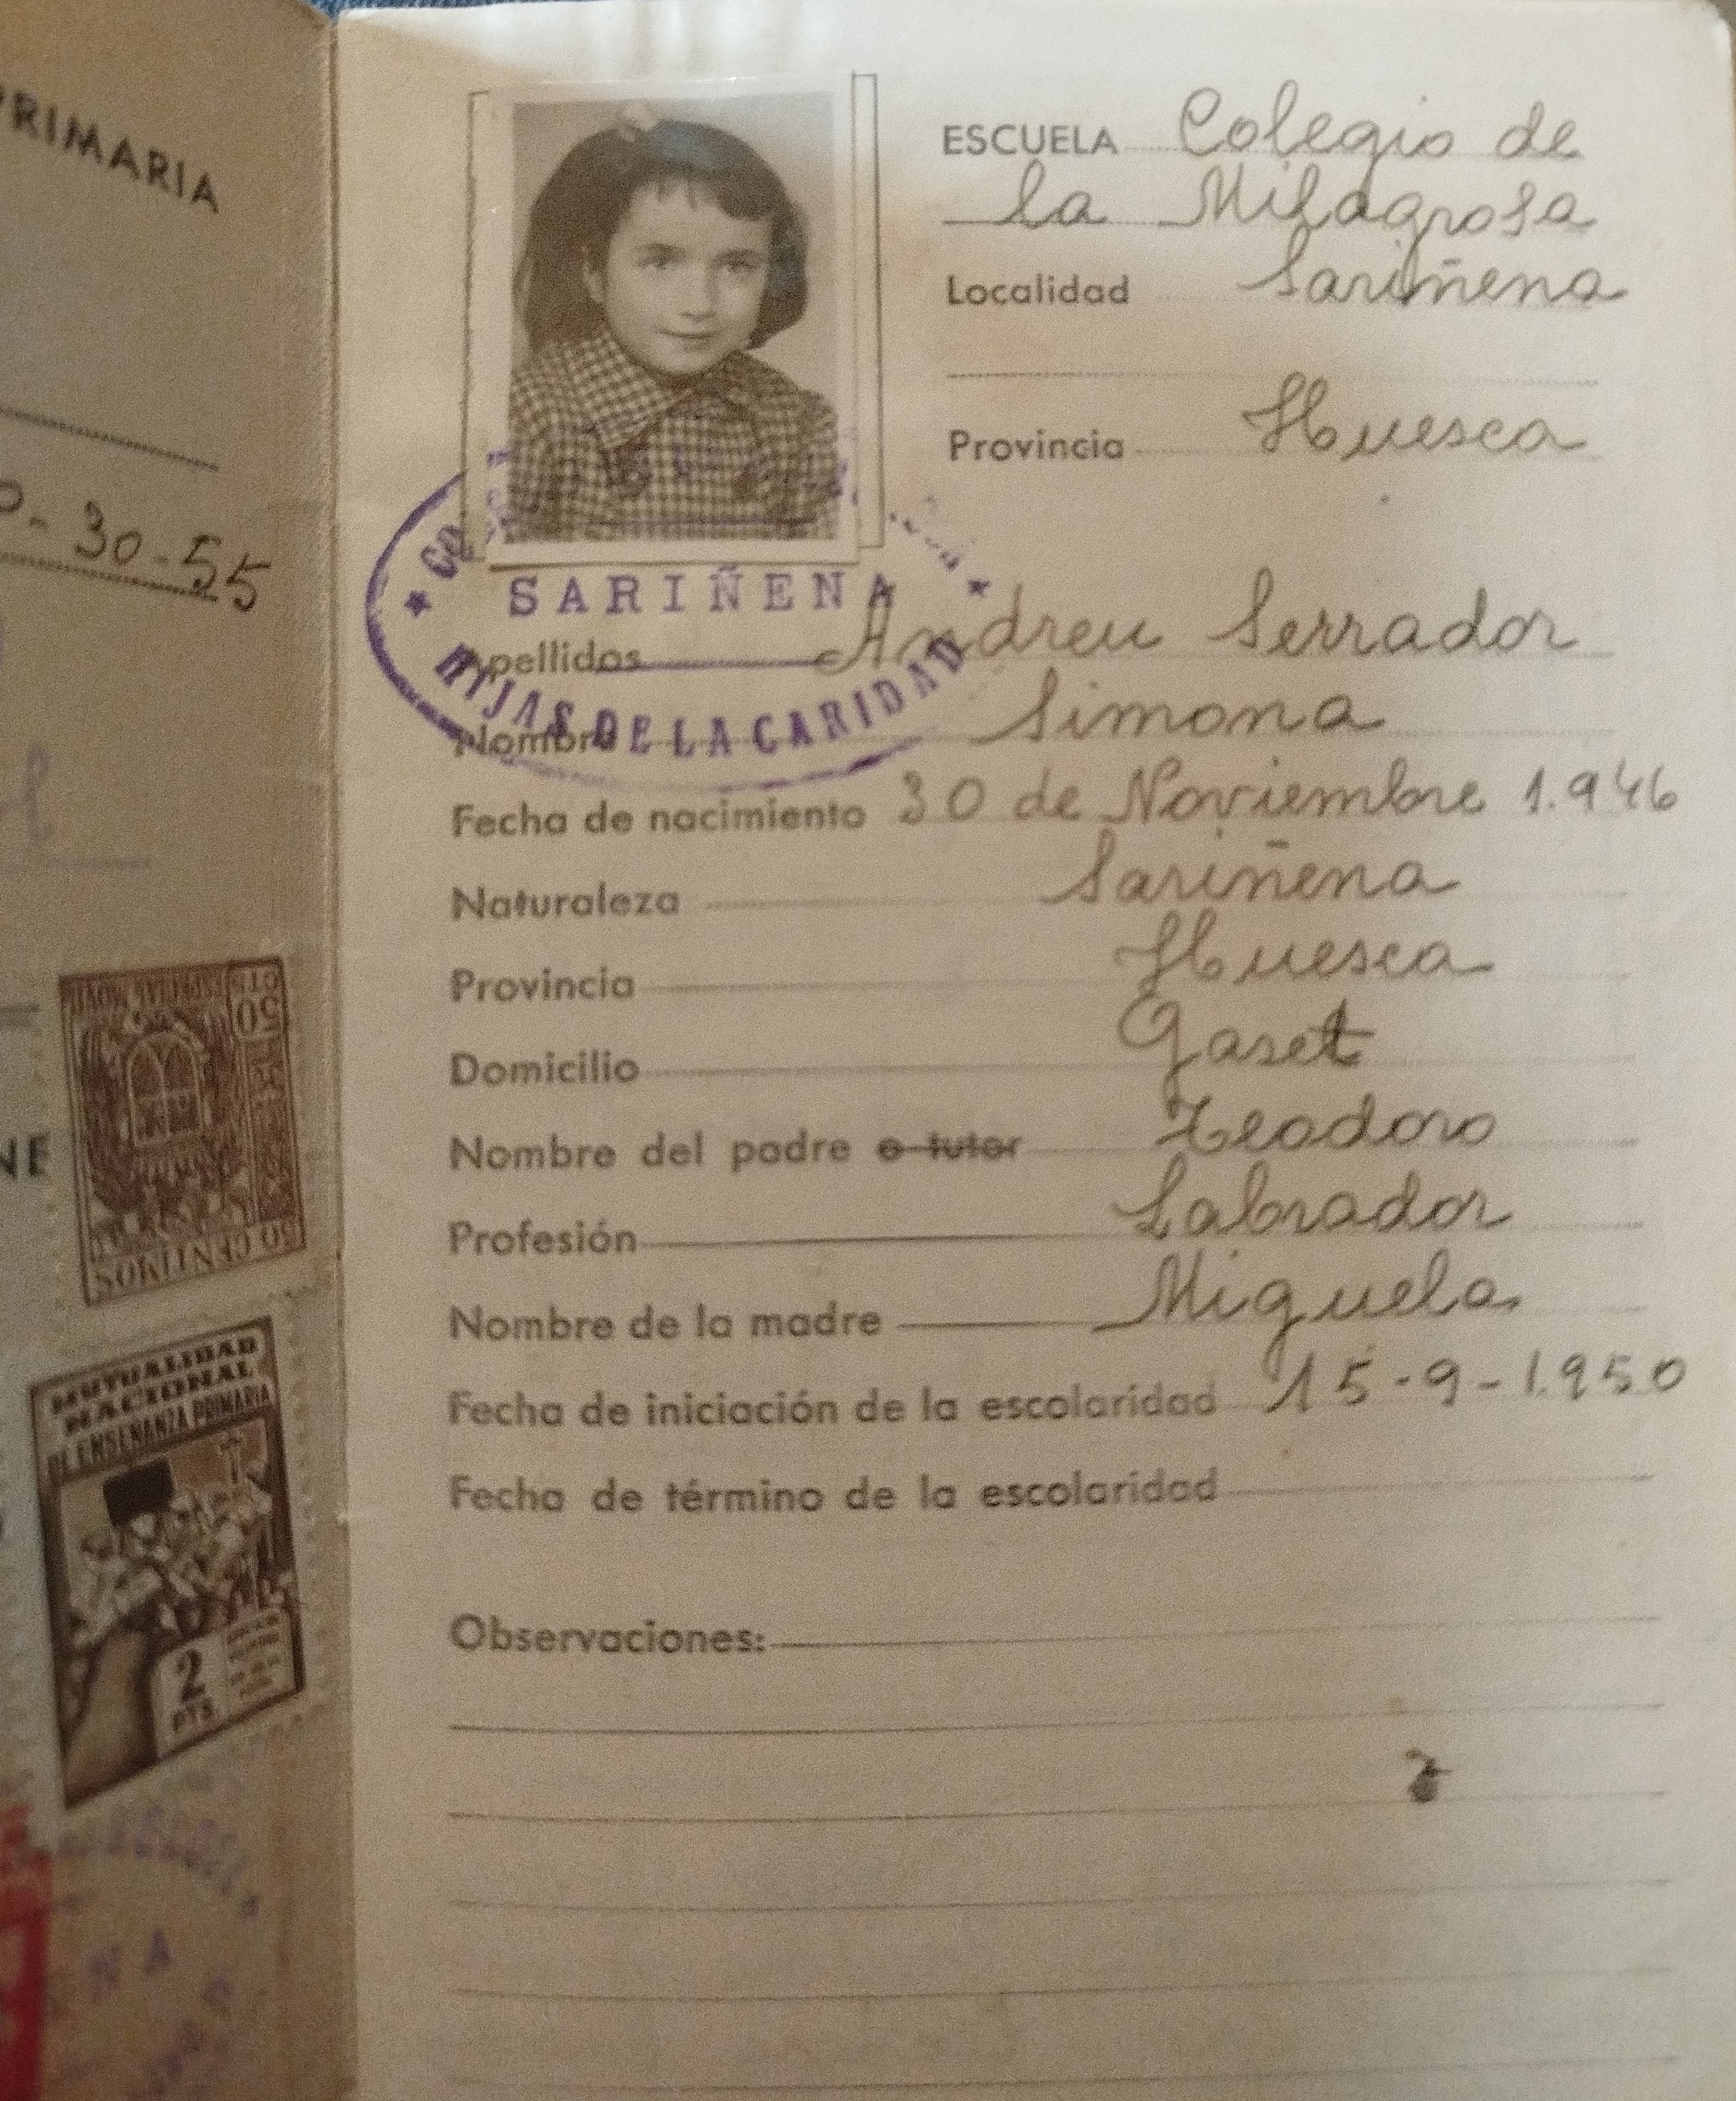 PRIMARIA
- 30-55
NE
50 CENTIMOS
50
CTS
ESPECIAL MOVIL
MUTUALIDAD
NACIONAL
DE ENSEÑANZA PRIMARIA
2
PTS
ESCUELA Colegio de
la Milagrosa
Localidad Sariñena
Provincia Huesca
SARIÑENA
HIJAS DE LA CARIDAD
Apellidos Andreu Serrador
Nombre Simona
Fecha de nacimiento 30 de Noviembre 1.946
Naturaleza Sariñena
Provincia Huesca
Domicilio Gaset
Nombre del padre o tutor Teodoro
Profesión Labrador
Nombre de la madre Miguela
Fecha de iniciación de la escolaridad 15-9-1.950
Fecha de término de la escolaridad
Observaciones: